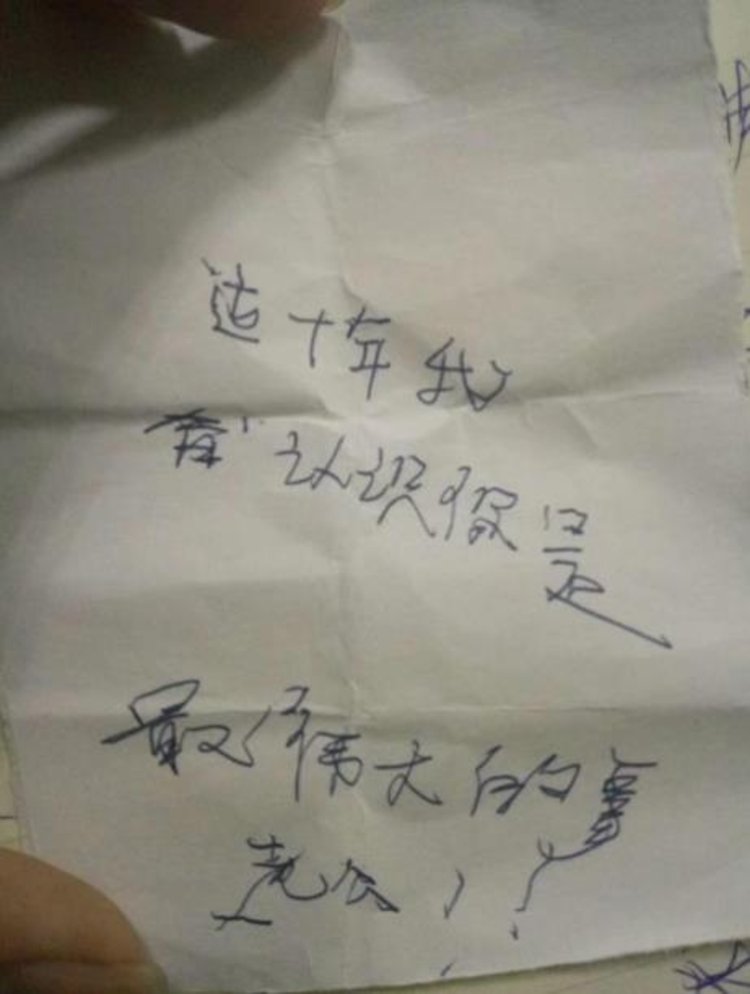 这十年我
认识 是
最伟大的
老公!?